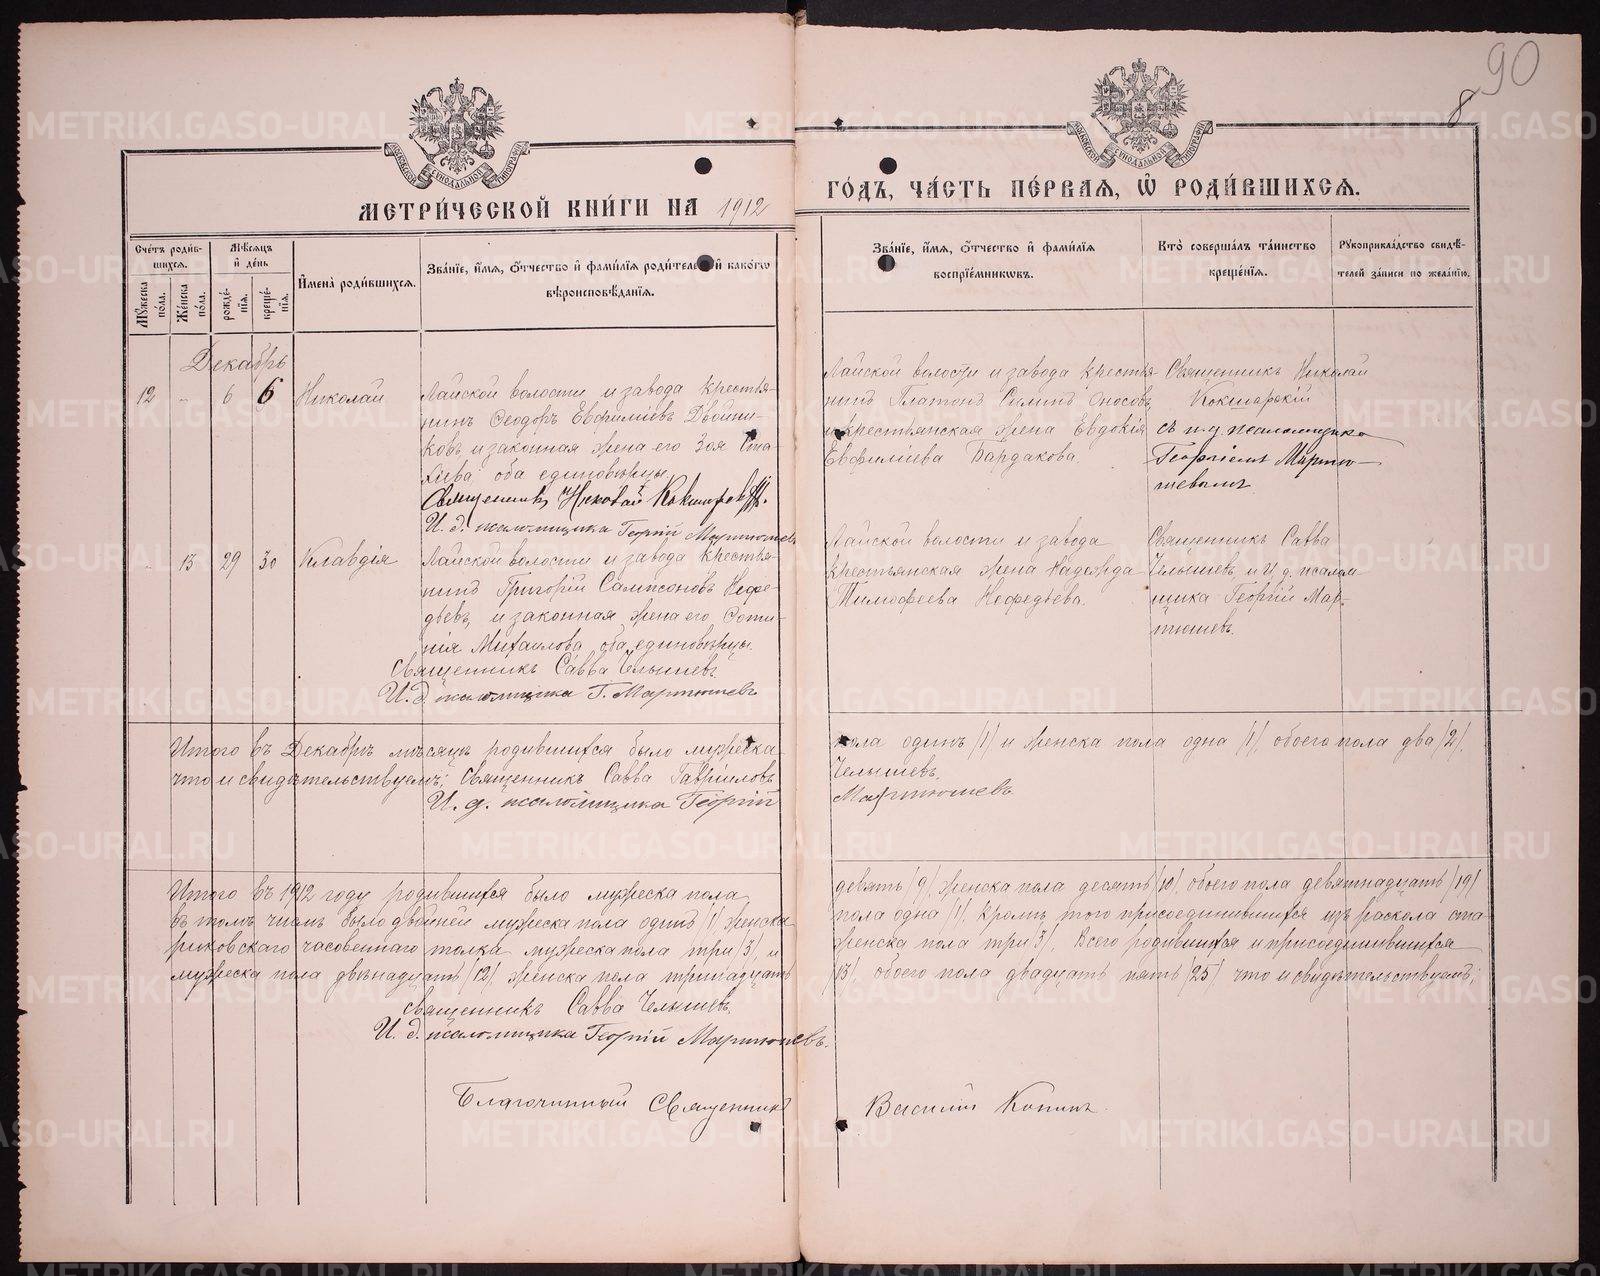 90
8
МЕТРИ́ЧЕСКОЙ КНИ́ГИ НА 1912
ГО́ДЪ, ЧА́СТЬ ПЕ́РВАЯ, Ѡ РОДИ́ВШИХСЯ.
Сче́тъ роди́вшихся.
Мѣ́сяцъ и́ де́нь
Му́жеска по́ла.
Же́нска по́ла.
рожде́нїя.
креще́нїя.
И҆мена̀ роди́вшихся.
Зва́нїе, и҆́мя, ѻ҆́тчество и҆ фами́лїя роди́телей и҆ како́гѡ
вѣроисповѣ́данїя.
Зва́нїе, и҆́мя, ѻ҆́тчество и҆ фами́лїя
воспрїе́мниковъ.
Кто̀ соверша́лъ та́инство
креще́нїя.
Рꙋкоприкла́дство свидѣ́-
телей за́писи по жела́нїю.
Декабрь
12 " 6 6 Николай
Лайской волости и завода крестья-
нинъ Ѳеодоръ Евфиміевъ Двойни-
ковъ и законная жена его Зоя
оба единовѣрцы
Священникъ Николай Кокшарскій.
И. д. псаломщика Георгій Мартюшевъ
Лайской волости и завода крестья-
нинъ Платонъ Оносовъ,
и крестьянская жена Евдокія
Евфиміева Бардакова
Священникъ Николай
Кокшарскій
съ и. д. псаломщика
Георгіемъ Мартю-
шевымъ
" 13 29 30 Клавдія
Лайской волости и завода крестья-
нинъ Григорій Сампсоновъ Нефе-
дьевъ, и законная жена его
Михаилова, оба единовѣрцы.
Священникъ Савва Челышевъ.
И. д. псаломщика Г. Мартюшевъ
Лайской волости и завода
крестьянская жена Надежда
Тимофеева Нефедьева.
Священникъ Савва
Челышевъ и И. д. псалом-
щика Георгій Мар-
тюшевъ.
Итого въ Декабрѣ мѣсяцѣ родившихся было мужеска пола одинъ /1/ и женска пола одна /1/, обоего пола два /2/,
что и свидѣтельствуемъ; Священникъ Савва Гавріиловъ Челышевъ.
И. д. псаломщика Георгій Мартюшевъ
Итого въ 1912 году родившихся было мужеска пола девять /9/, женска пола десять /10/, обоего пола девятнадцать /19/
въ томъ числѣ было двойней мужеска пола одинъ /1/ женска пола одна /1/. Кромѣ того присоединившихся изъ раскола ста-
риковскаго часовеннаго толка мужеска пола три /3/, и женска пола три /3/. Всего родившихся и присоединившихся
мужеска пола двѣнадцать /12/, женска пола тринадцать /13/, обоего пола двадцать пять /25/ что и свидѣтельствуемъ;
Священникъ Савва Челышевъ.
И. д. псаломщика Георгій Мартюшевъ.
Благочинный Священникъ Василій Копинъ
METRIKI.GASO-URAL.RU